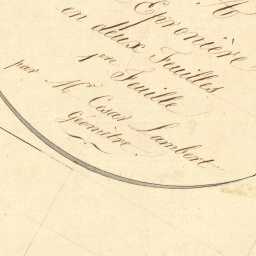 A
Epronière
en deux Feuilles
1re Feuille
par Mr César Lambert
Géomètre.